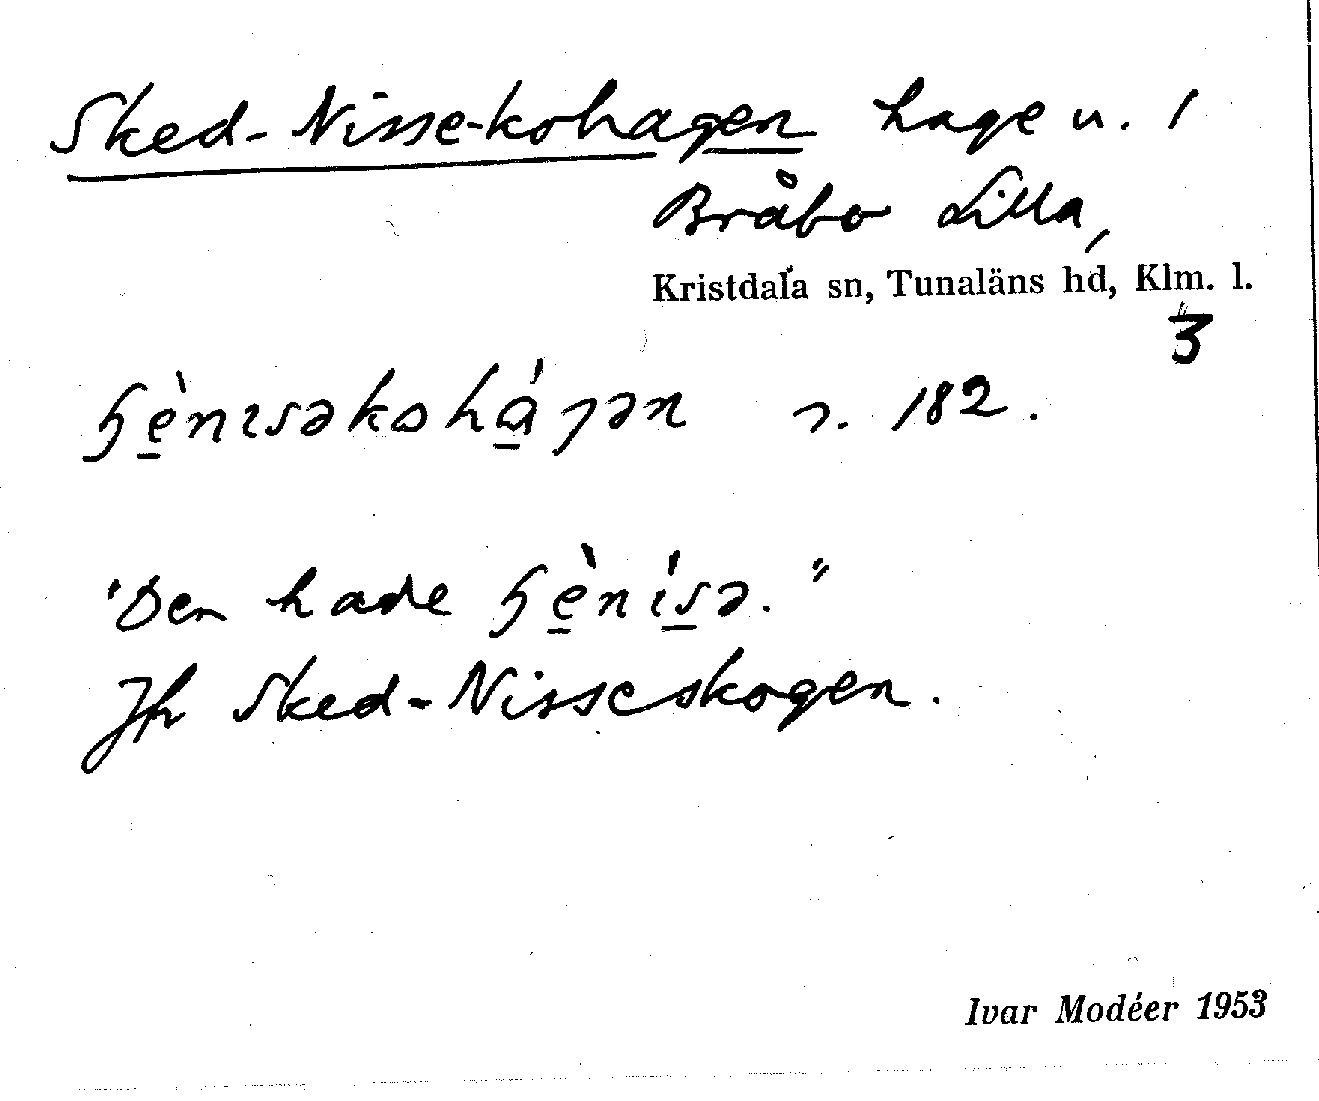 Sked-Nisse-kohagen hage u. /
Bråbo Lilla,
Kristdala sn, Tunaläns hd, Klm. l.
3
ɧè̠nɩsəkohá̠gən r. 182.
"Den hade ɧè̠nɩ́s̠ə."
Jfr Sked-Nisseskogen.
Ivar Modéer 1953